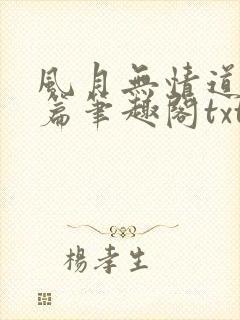 風月無情道
篇筆趣閣txt
楊孝生